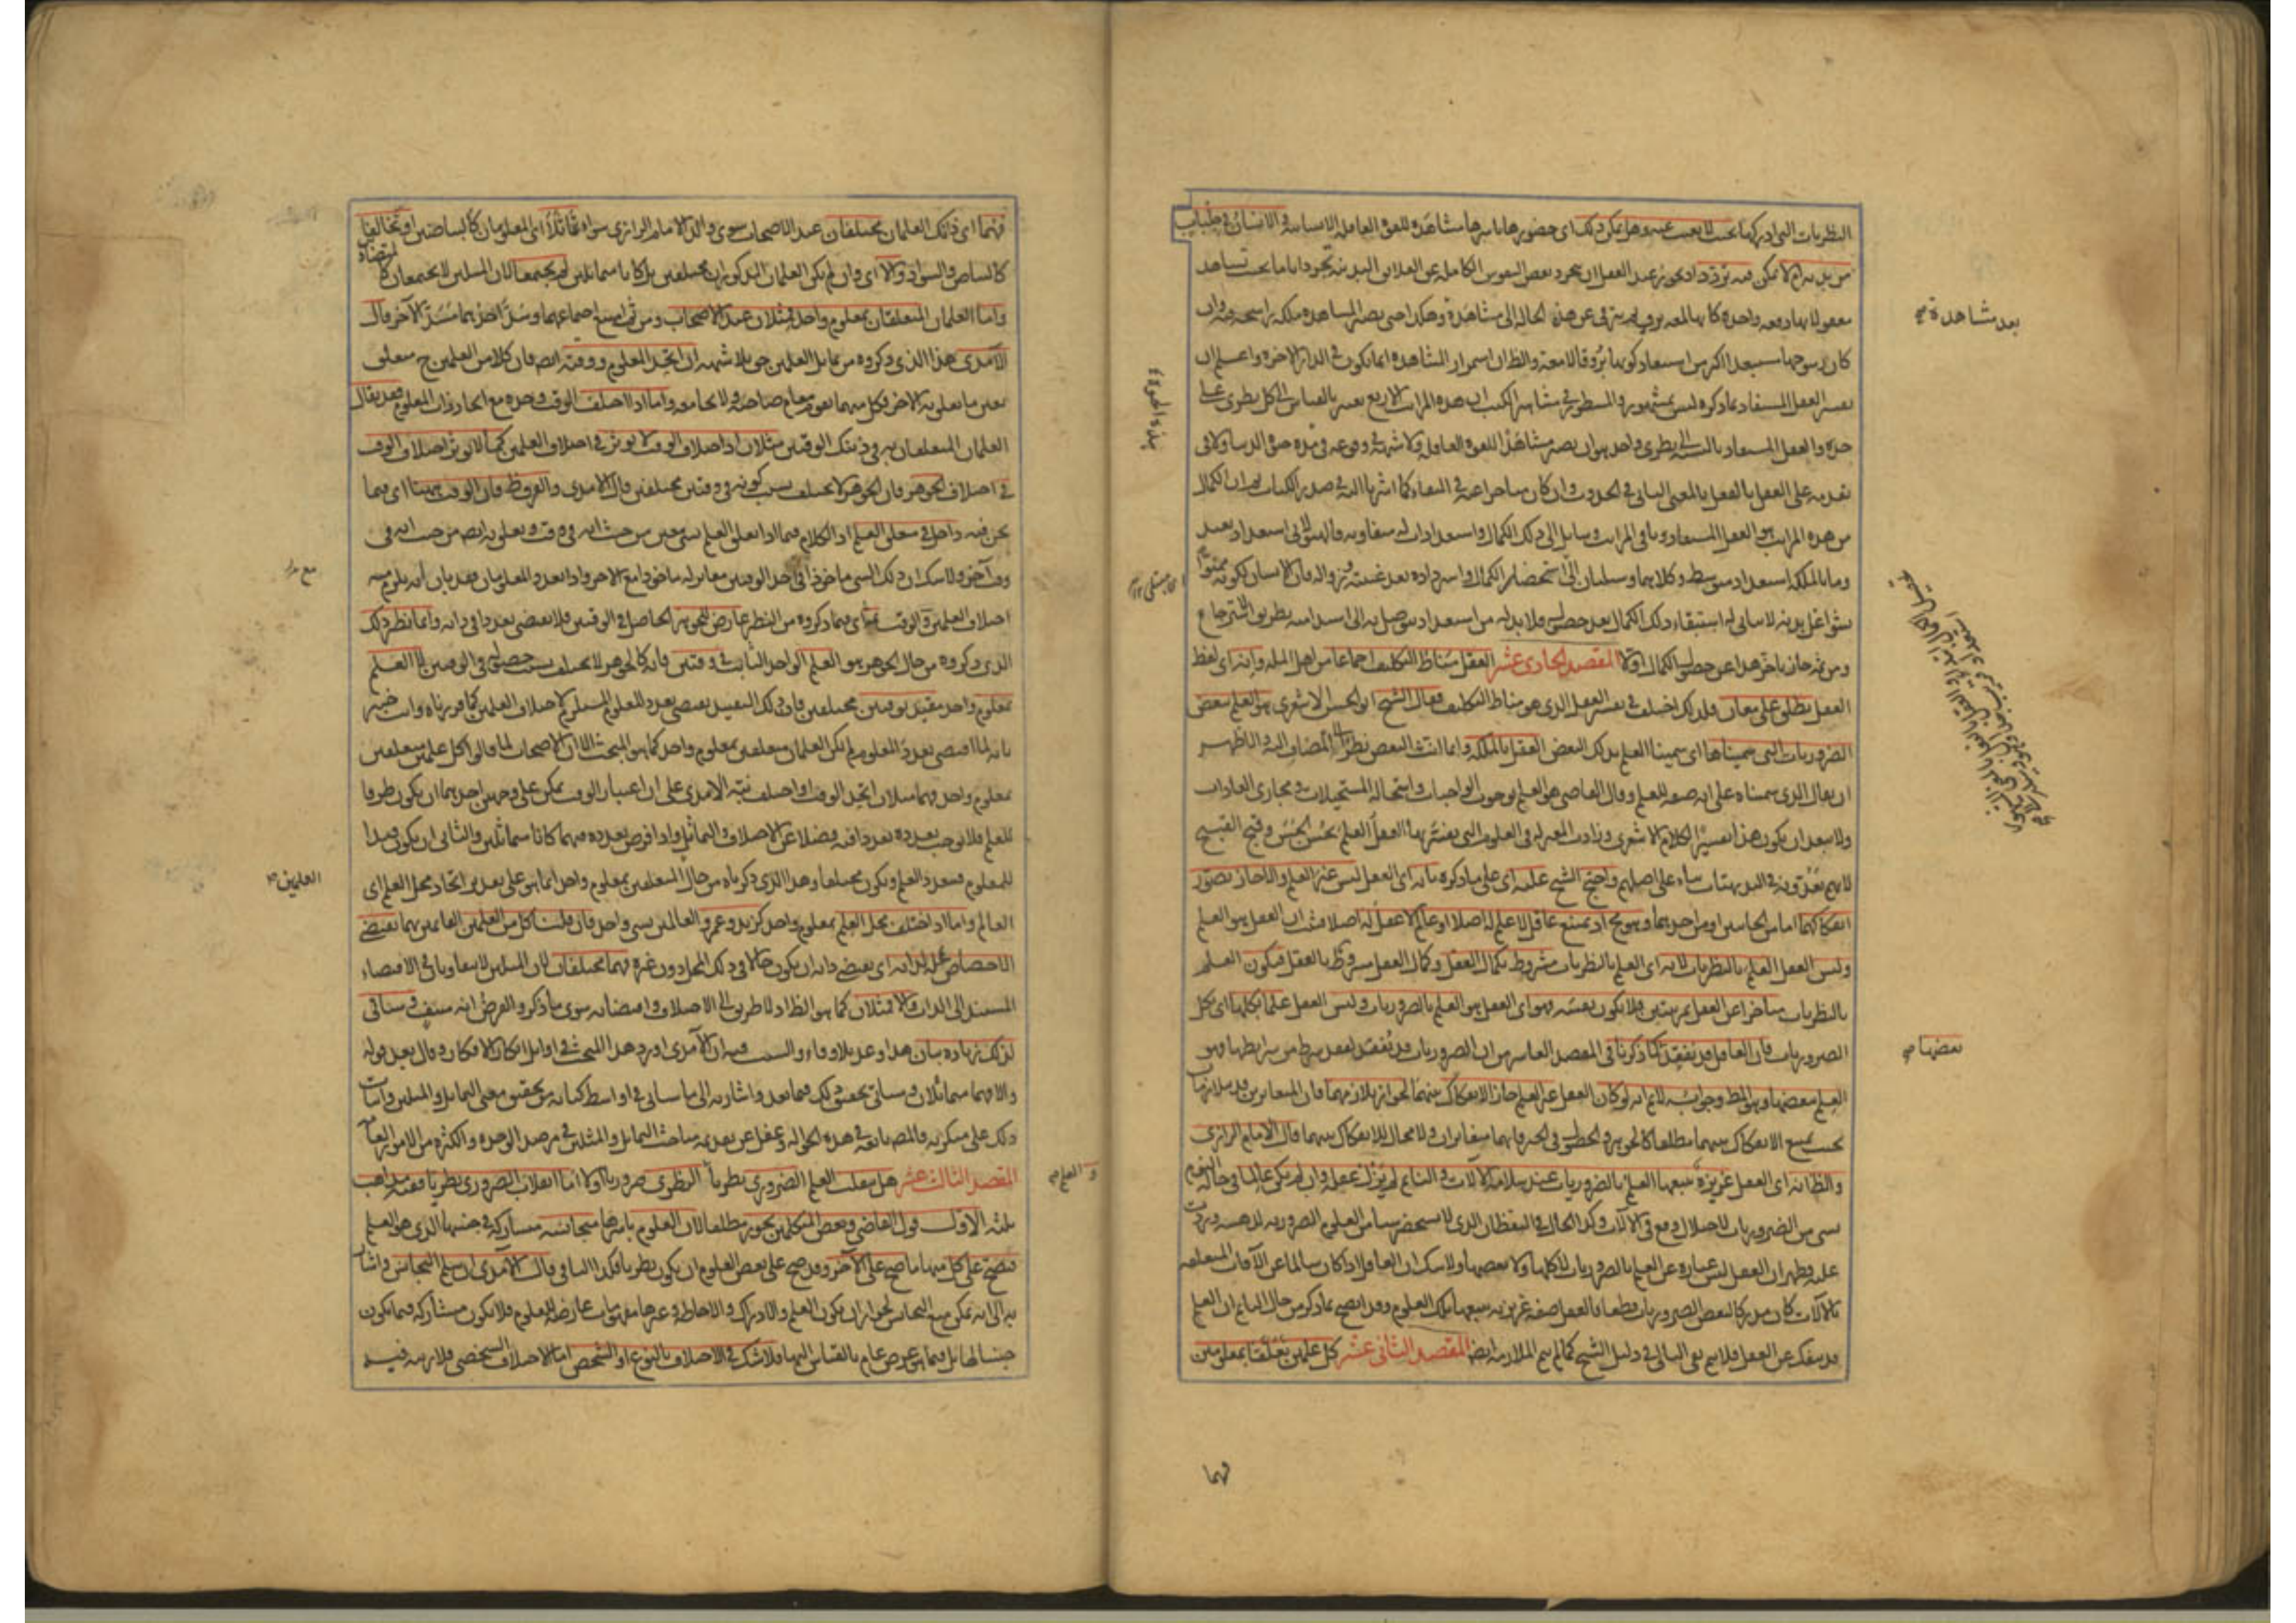 النظريات التى ادركها بحيث لا يغيب عنه وهل يمكن ذلك اى حضورها باسرها مشاهدة للقوة العاقلة الانسانية والانسان فى جلباب
من بدنه ام لا يمكن فيه تردد اذ يجوز عند العقل ان يتجرد بعض النفوس الكاملة عن العلائق البدنية تجردا تاما بحيث تشاهد
معقولاتها دفعة واحدة كأنها لمعة بروق ثم يترقى عن هذه الحالة الى مشاهدة وهكذا حتى يصير المشاهدة ملكة راسخة فيه وان
كان رسوخها مستبعدا اكثر من استبعاد كونها بروقا لامعة والظ ان استمرار المشاهدة انما يكون فى الدار الاخرة واعلم ان
تفسير العقل المستفاد بما ذكره ليس بمشهور والمسطور فى مشاهير الكتب ان هذه المراتب الاربع تعتبر بالقياس الى كل نظرى على
حدة والعقل المستفاد بالنسبة الى نظرى واحد هو ان يصير مشاهدا للقوة العاقلة ولا شبهة فى وقوعه فى هذه حيوة الدنيا ولا فى
تقدمه على العقل بالفعل بالمعنى الثانى فى الحدوث وان كان متاخرا عنه فى البقاء كما اشرنا اليه فى صدر الكتاب ان الكمال
من هذه المراتب هو العقل المستفاد وباقى المراتب وسايل الى ذلك الكمال واستعدادات له متفاوتة فالهيولانى استعداد بعيد
وما بالملكة استعداد متوسط وكلاهما وسيلتان الى استحضار الكمال واسترداده بعد غيبته وزواله فان الانسان لكونه ممنوا
بشواغل بدنية لا يتأتى له استبقاء ذلك الكمال بعد حصوله فلا بد له من استعداد يتوصل به الى استدامته بطريق الاسترجاع
ومن ثم جاز تاخر هذا عن حصول الكمال اولا المقصد الحادى عشر العقل مناط التكليف اجماعا من اهل الملة وانه اى لفظ
العقل يطلق على معان فلذلك اختلف فى تفسير العقل الذى هو مناط التكليف فقال الشيخ ابو الحسن الاشعرى هو العلم ببعض
الضروريات التى سميناها اى سمينا العلم بذلك البعض العقل بالملكة وانما انث البعض نظرا الى المضاف اليه والاظهر
ان يقال الذى سميناه على انه صفة للعلم وقال القاضى هو العلم بوجوب الواجبات واستحالة المستحيلات ومجارى العادات
ولا يبعد ان يكون هذا تفسيرا لكلام الاشعرى وزادت المعتزلة فى العلوم التى يفسر بها العقل العلم بحسن الحسن وقبح القبيح
لانهم يعدونه فى البديهيات بناء على اصلهم واحتج الشيخ عليه اى على ما ذكره بانه اى العقل ليس غير العلم والا جاز تصور
انفكاكهما اما من الجانبين او من احدهما وهو مح اذ يمتنع عاقل لا علم له اصلا او عالم لا عقل له اصلا فثبت ان العقل هو العلم
وليس العقل العلم بالنظريات لانه اى العلم بالنظريات مشروط بكمال العقل وكمال العقل مشروط بالعقل فيكون العلم
بالنظريات متأخرا عن العقل بمرتبتين فلا يكون نفسه فهو اى العقل هو العلم بالضروريات وليس العقل علما بكلها اى بكل
الضروريات فان العاقل قد يفقد كما ذكرنا فى المقصد العاشر من ان الضروريات قد تفقد لفقد شرط من شرائطها فهو
العلم ببعضها وهو المط وجوابه لانم انه لو كان العقل غير العلم جاز الانفكاك بينهما لجواز تلازمهما فان المتغايرين قد يتلازمان
بحيث يمتنع الانفكاك بينهما مطلقا كالجوهر والحصول فى الحيز فانهما متغايران ولا مجال للانفكاك بينهما قال الامام الرازى
والظ انه اى العقل غريزة يتبعها العلم بالضروريات عند سلامة الآلات والنائم لم يزل عقله وان لم يكن عالما فى حالة النوم
بشى من الضروريات لاختلال وقع فى الآلات وكذا الحال فى اليقظان الذى لا يستحضر شيا من العلوم الضرورية لدهشة وردت
عليه فظهر ان العقل ليس عبارة عن العلم بالضروريات لا كلها ولا بعضها ولا شك ان العاقل اذا كان سالما عن الآفات المتعلقة
بالآلات كان مدركا لبعض الضروريات قطعا فالعقل صفة غريزية يتبعها تلك العلوم وقد اتضح بما ذكر من حال النائم ان العلم
قد ينفك عن العقل فلا يتم نفى التالى فى دليل الشيخ كما لم يتم الملازمة ايضا المقصد الثانى عشر كل علمين تعلقا بمعلومين
بعد مشاهدة
بعضها
فهما
فهما اى ذانك العلمان مختلفان عند الاصحاب سوى والد الامام الرازى سواء تماثلا اى المعلومان كالبياضين او تخالفا
كالبياض والسواد والا اى وان لم يكن العلمان المذكوران مختلفين بل كانا متماثلين لم يجتمعا لان المثلين لا يجتمعان كا
لمتضادة
واما العلمان المتعلقان بمعلوم واحد فمثلان عند الاصحاب ومن ثم امتنع اجتماعهما وسد احدهما مسد الآخر قال
الآمدى هذا الذى ذكروه من تماثل العلمين حق بلا شبهة ان اتحد المعلوم ووقته ايضا فان كلا من العلمين ح متعلق
بعين ما تعلق به الاخر وكل منهما يقوم مقام صاحبه ولا يجامعه واما اذا اختلف الوقت وحده مع اتحاد ذات المعلوم فقد يقال
العلمان المتعلقان به فى ذينك الوقتين مثلان اذ اختلاف الوقت لا يؤثر فى اختلاف العلمين كما لا يؤثر اختلاف الوقت
فى اختلاف الجوهر فان الجوهر لا يختلف بسبب كونه فى وقتين مختلفين قال الآمدى والفرق ظ فان الوقت ههنا اى فيما
نحن فيه داخل فى متعلق العلم اذ الكلام فيما اذا تعلق العلم بشى معين من حيث انه فى وقت وتعلق به ايضا من حيث انه فى
وقت آخر ولا شك ان ذلك الشى ماخوذا فى احد الوقتين مغاير له ماخوذا مع الاخر واذا تعدد المعلومان فقد بان انه يلزم منه
اختلاف العلمين والوقت ثمة اى فيما ذكروه من النظير عارض للجوهر الحاصل فى الوقتين فلا يقتضى تعددا فى ذاته وانما نظير ذلك
الذى ذكروه من حال الجوهر هو العلم الواحد الثابت فى وقتين فانه كالجوهر لا يختلف بسبب حصوله فى الوقتين لا العلم
بمعلوم واحد مقيد بوقتين مختلفين فان ذلك التقييد يقتضى تعدد المعلوم المستلزم لاختلاف العلمين كما قررناه وانت خبير
بانه لما اقتضى تعدد المعلوم لم يكن العلمان متعلقين بمعلوم واحد كما هو المبحث الا ان الاصحاب لما قالوا كل علمين متعلقين
بمعلوم واحد فهما مثلان اتحد الوقت او اختلف نبه الآمدى على ان اعتبار الوقت يمكن على وجهين احدهما ان يكون ظرفا
للعلم فلا يوجب تعدده تعددا فيه فضلا عن الاختلاف والتماثل واذا فرض تعدده فيهما كانا متماثلين والثانى ان يكون قيدا
للمعلوم فيتعدد العلم ويكون مختلفا وهذا الذى ذكرناه من حال المتعلقين بمعلوم واحد انما هو على تقدير اتحاد محل العلم اى
العالم واما اذا اختلف محل العلم بمعلوم واحد كزيد وعمرو العالمين بشى واحد فان قلنا كل من العلمين القائمين بهما يقتضى
الاختصاص بمحله لذاته اى يقتضى ذاته ان يكون حالا فى ذلك المحل دون غيره فهما مختلفان لان المثلين لا يتفاوتان فى الاقتضاء
المستند الى الذات والا فمثلان كما هو الظ اذ لا طريق الى الاختلاف واقتضائه سوى ما ذكر والفرض انه منتف وستأتى
لذلك زيادة بيان هذا وعد بلا وفاء والسبب فيه ان الآمدى اورد هذا البحث فى اوائل ابكار الافكار وقال بعد قوله
والا فهما متماثلان وسياتى تحقيق ذلك فيما بعد واشار به الى ما سيأتى فى اواسط كتابه من تحقيق معنى التماثل والمثلين واثبات
ذلك على منكريه فالمص تابعه فى هذه الحوالة وغفل عن تقديمه مباحث التماثل والمثلين فى مرصد الوحدة والكثرة من الامور العامة
المقصد الثالث عشر هل ينقلب العلم الضرورى نظريا والنظرى ضروريا اولا اما انقلاب الضرورى نظريا ففيه مذاهب
ثلثة الاول قول القاضى وبعض المتكلمين يجوز مطلقا لان العلوم باسرها متجانسة متشاركة فى جنسها الذى هو العلم
فيصح على كل منها ما صح على الآخر وقد صح على بعض العلوم ان يكون نظريا فكذا الباقى قال الآمدى ان سلم التجانس واشار
به الى انه يمكن منع التجانس لجواز ان يكون العلم والادراك والاحاطة وغيرها مفهومات عارضة للعلوم فلا يكون مشاركة فيما يكون
جنسا لها بل فيما هو عرض عام بالقياس اليها فلا شك فى الاختلاف بالنوع او الشخص اما الاختلاف الشخصى فلا ريبة فيه
العلمين